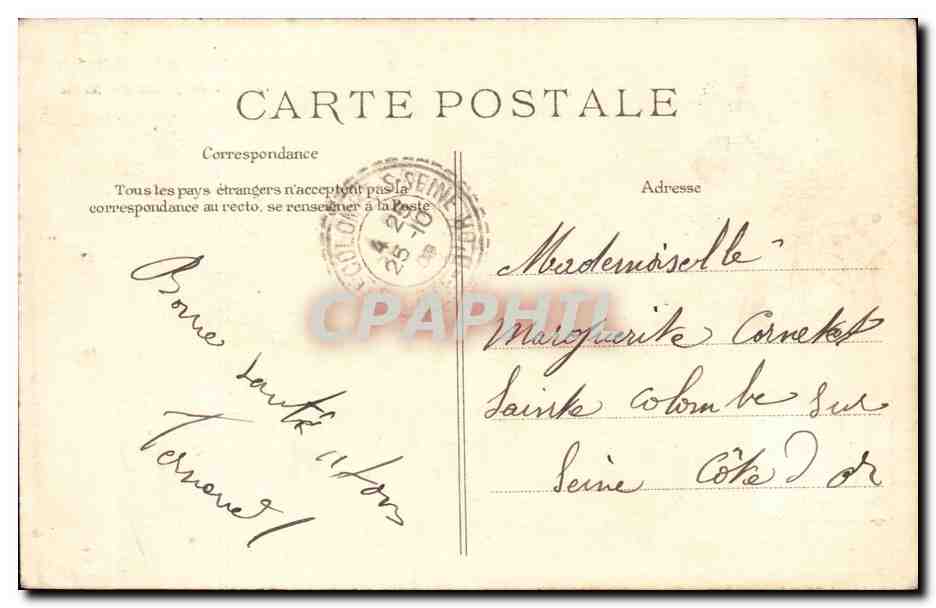 CARTE POSTALE
Correspondance
Tous les pays étrangers n'acceptent pas la
correspondance au recto, se renseigner à la Poste
Adresse
STE COLOMBE S SEINE
25
25 -10
CPAPHIL
Bonne
santé à tous
Mademoiselle
Marguerite Cornetet
Sainte Colombe sur
Seine Côte d'or